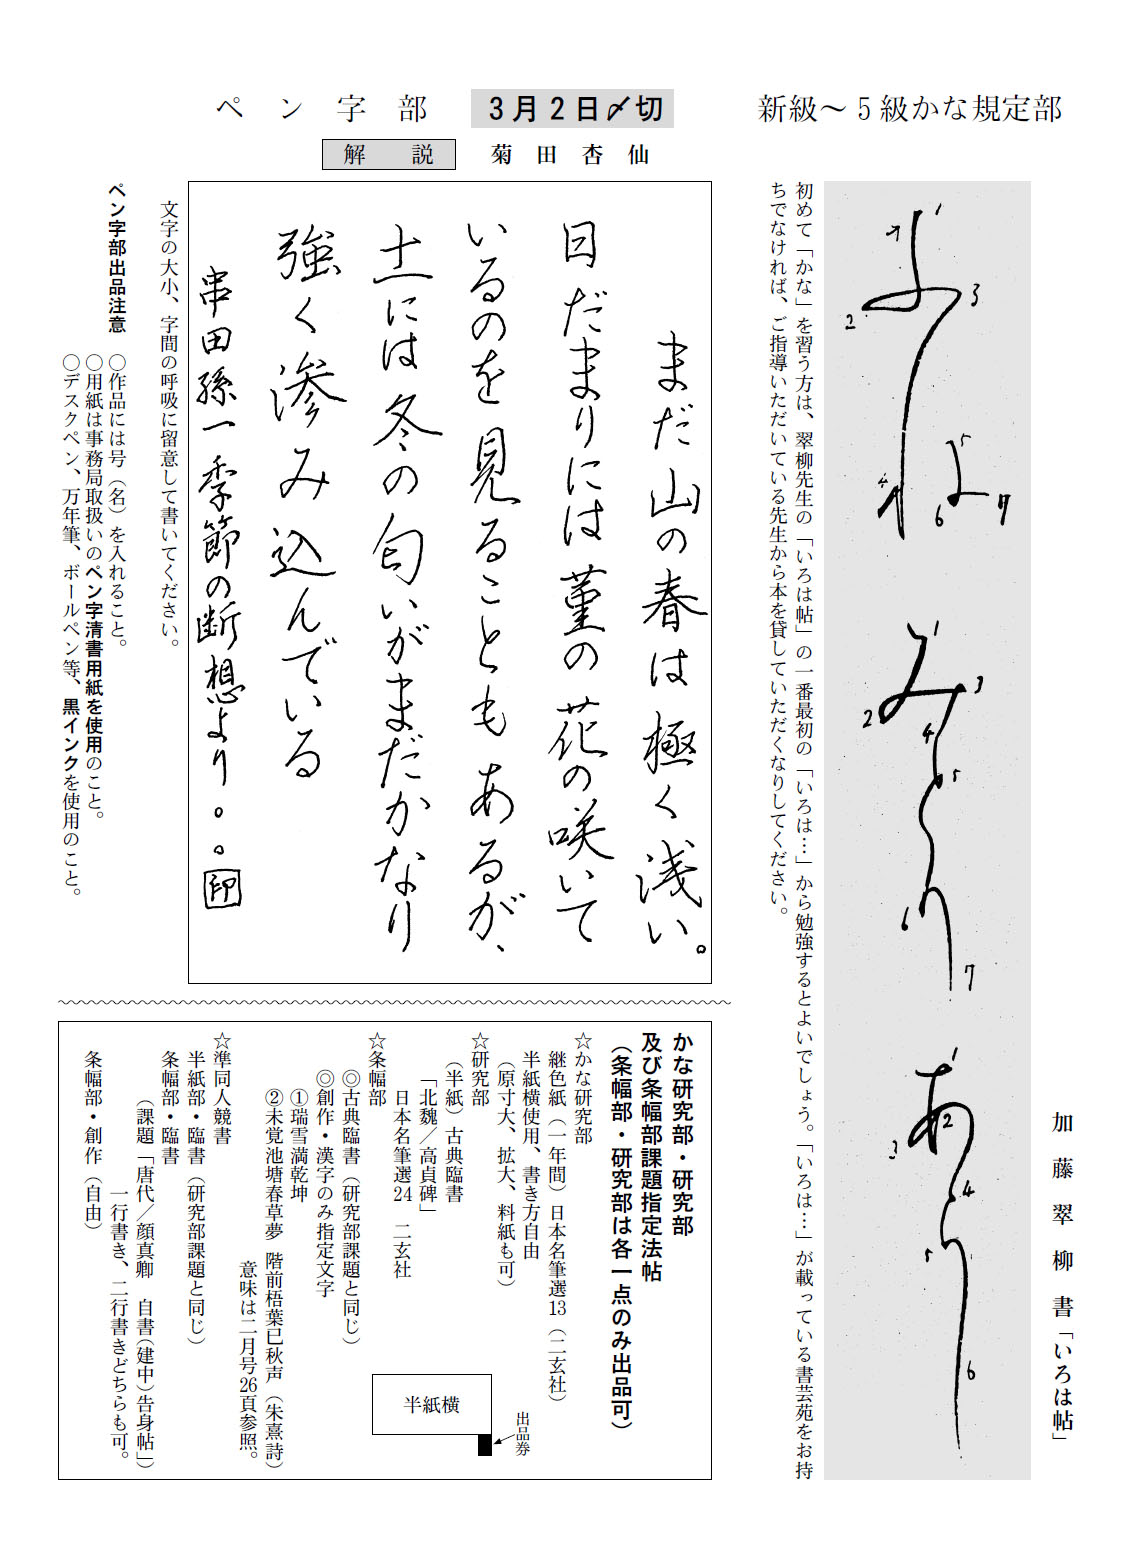 新級～5級かな規定部
加藤翠柳書「いろは帖」
みとり
初めて「かな」を習う方は、翠柳先生の「いろは帖」の一番最初の「いろは…」から勉強するとよいでしょう。「いろは…」が載っている書芸苑をお持
ちでなければ、ご指導いただいている先生から本を貸していただくなりしてください。
ペン字部
3月2日〆切
解説
菊田杏仙
まだ山の春は極く浅い。
日だまりには菫の花の咲いて
いるのを見ることもあるが、
土には冬の匂いがまだかなり
強く滲み込んでいる
串田孫一季節の断想より。。印
文字の大小、字間の呼吸に留意して書いてください。
ペン字部出品注意
○作品には号（名）を入れること。
○用紙は事務局取扱いのペン字清書用紙を使用のこと。
○デスクペン、万年筆、ボールペン等、黒インクを使用のこと。
かな研究部・研究部
及び条幅部課題指定法帖
（条幅部・研究部は各一点のみ出品可）
☆かな研究部
継色紙（一年間）日本名筆選13（二玄社）
半紙横使用、書き方自由
（原寸大、拡大、料紙も可）
☆研究部
（半紙）古典臨書
「北魏／高貞碑」
日本名筆選24　二玄社
☆条幅部
◎古典臨書（研究部課題と同じ）
◎創作・漢字のみ指定文字
①瑞雪満乾坤
②未覚池塘春草夢　階前梧葉已秋声（朱熹詩）
意味は二月号26頁参照。
☆準同人競書
半紙部・臨書（研究部課題と同じ）
条幅部・臨書
（課題「唐代／顔真卿　自書（建中）告身帖」）
一行書き、二行書きどちらも可。
条幅部・創作（自由）
半紙横
出品券